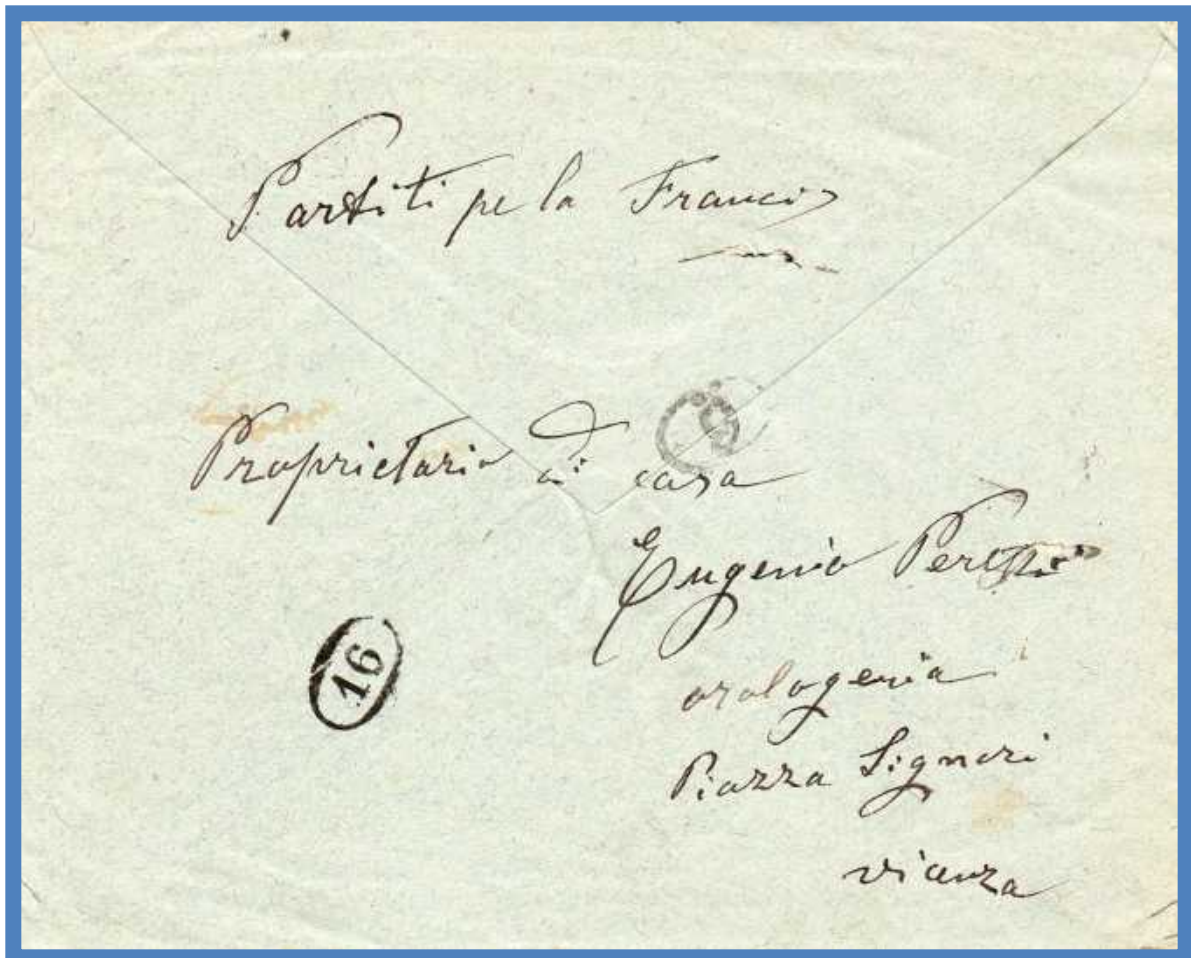 Partiti pe la Francia
Proprietario di casa
Eugenio
orologeria
Piazza Signori
vicenza
16